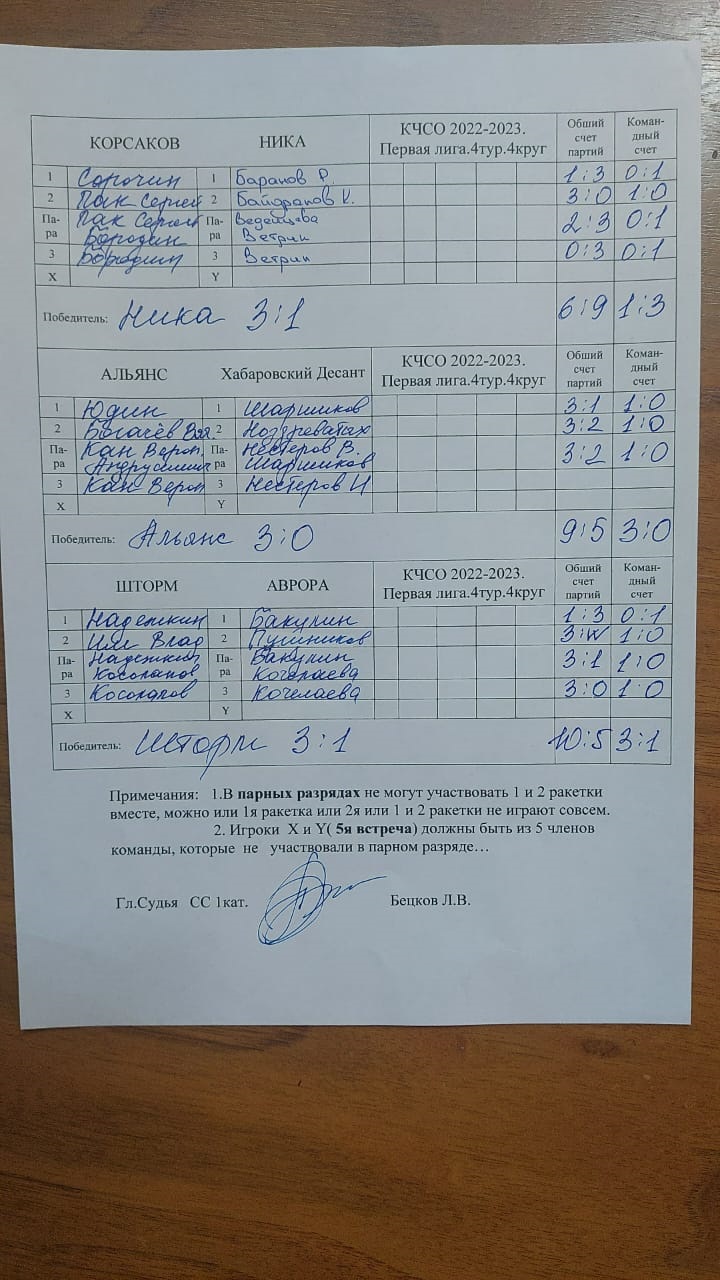 КОРСАКОВ НИКА КЧСО 2022-2023. Первая лига.4тур.4круг Общий счет партий Коман-дный счет
1 Сорочин 1 Баранов Р. 1:3 0:1
2 Пак Сергей 2 3:0 1:0
Па-ра Пак Сергей Па-ра 2:3 0:1
Бородин Ветрин
3 Бородин 3 Ветрин 0:3 0:1
X Y
Победитель: Ника 3:1 6:9 1:3
АЛЬЯНС Хабаровский Десант КЧСО 2022-2023. Первая лига.4тур.4круг Общий счет партий Коман-дный счет
1 Юдин 1 Шаршиков 3:1 1:0
2 Богачёв 2 Ноздреватых 3:2 1:0
Па-ра Кан Верон. Па-ра Нестеров В. 3:2 1:0
Шаршиков
3 Кан Верон 3 Нестеров И
X Y
Победитель: Альянс 3:0 9:5 3:0
ШТОРМ АВРОРА КЧСО 2022-2023. Первая лига.4тур.4круг Общий счет партий Коман-дный счет
1 Надежкин 1 Бакулин 1:3 0:1
2 Им Влад 2 Пушников 3:W 1:0
Па-ра Надежкин Па-ра Бакулин 3:1 1:0
Косолапов Кочелаева
3 Косолапов 3 Кочелаева 3:0 1:0
X Y
Победитель: Шторм 3:1 10:5 3:1
Примечания: 1.В парных разрядах не могут участвовать 1 и 2 ракетки
вместе, можно или 1я ракетка или 2я или 1 и 2 ракетки не играют совсем.
2. Игроки X и Y( 5я встреча) должны быть из 5 членов
команды, которые не участвовали в парном разряде…
Гл.Судья СС 1кат. Бецков Л.В.